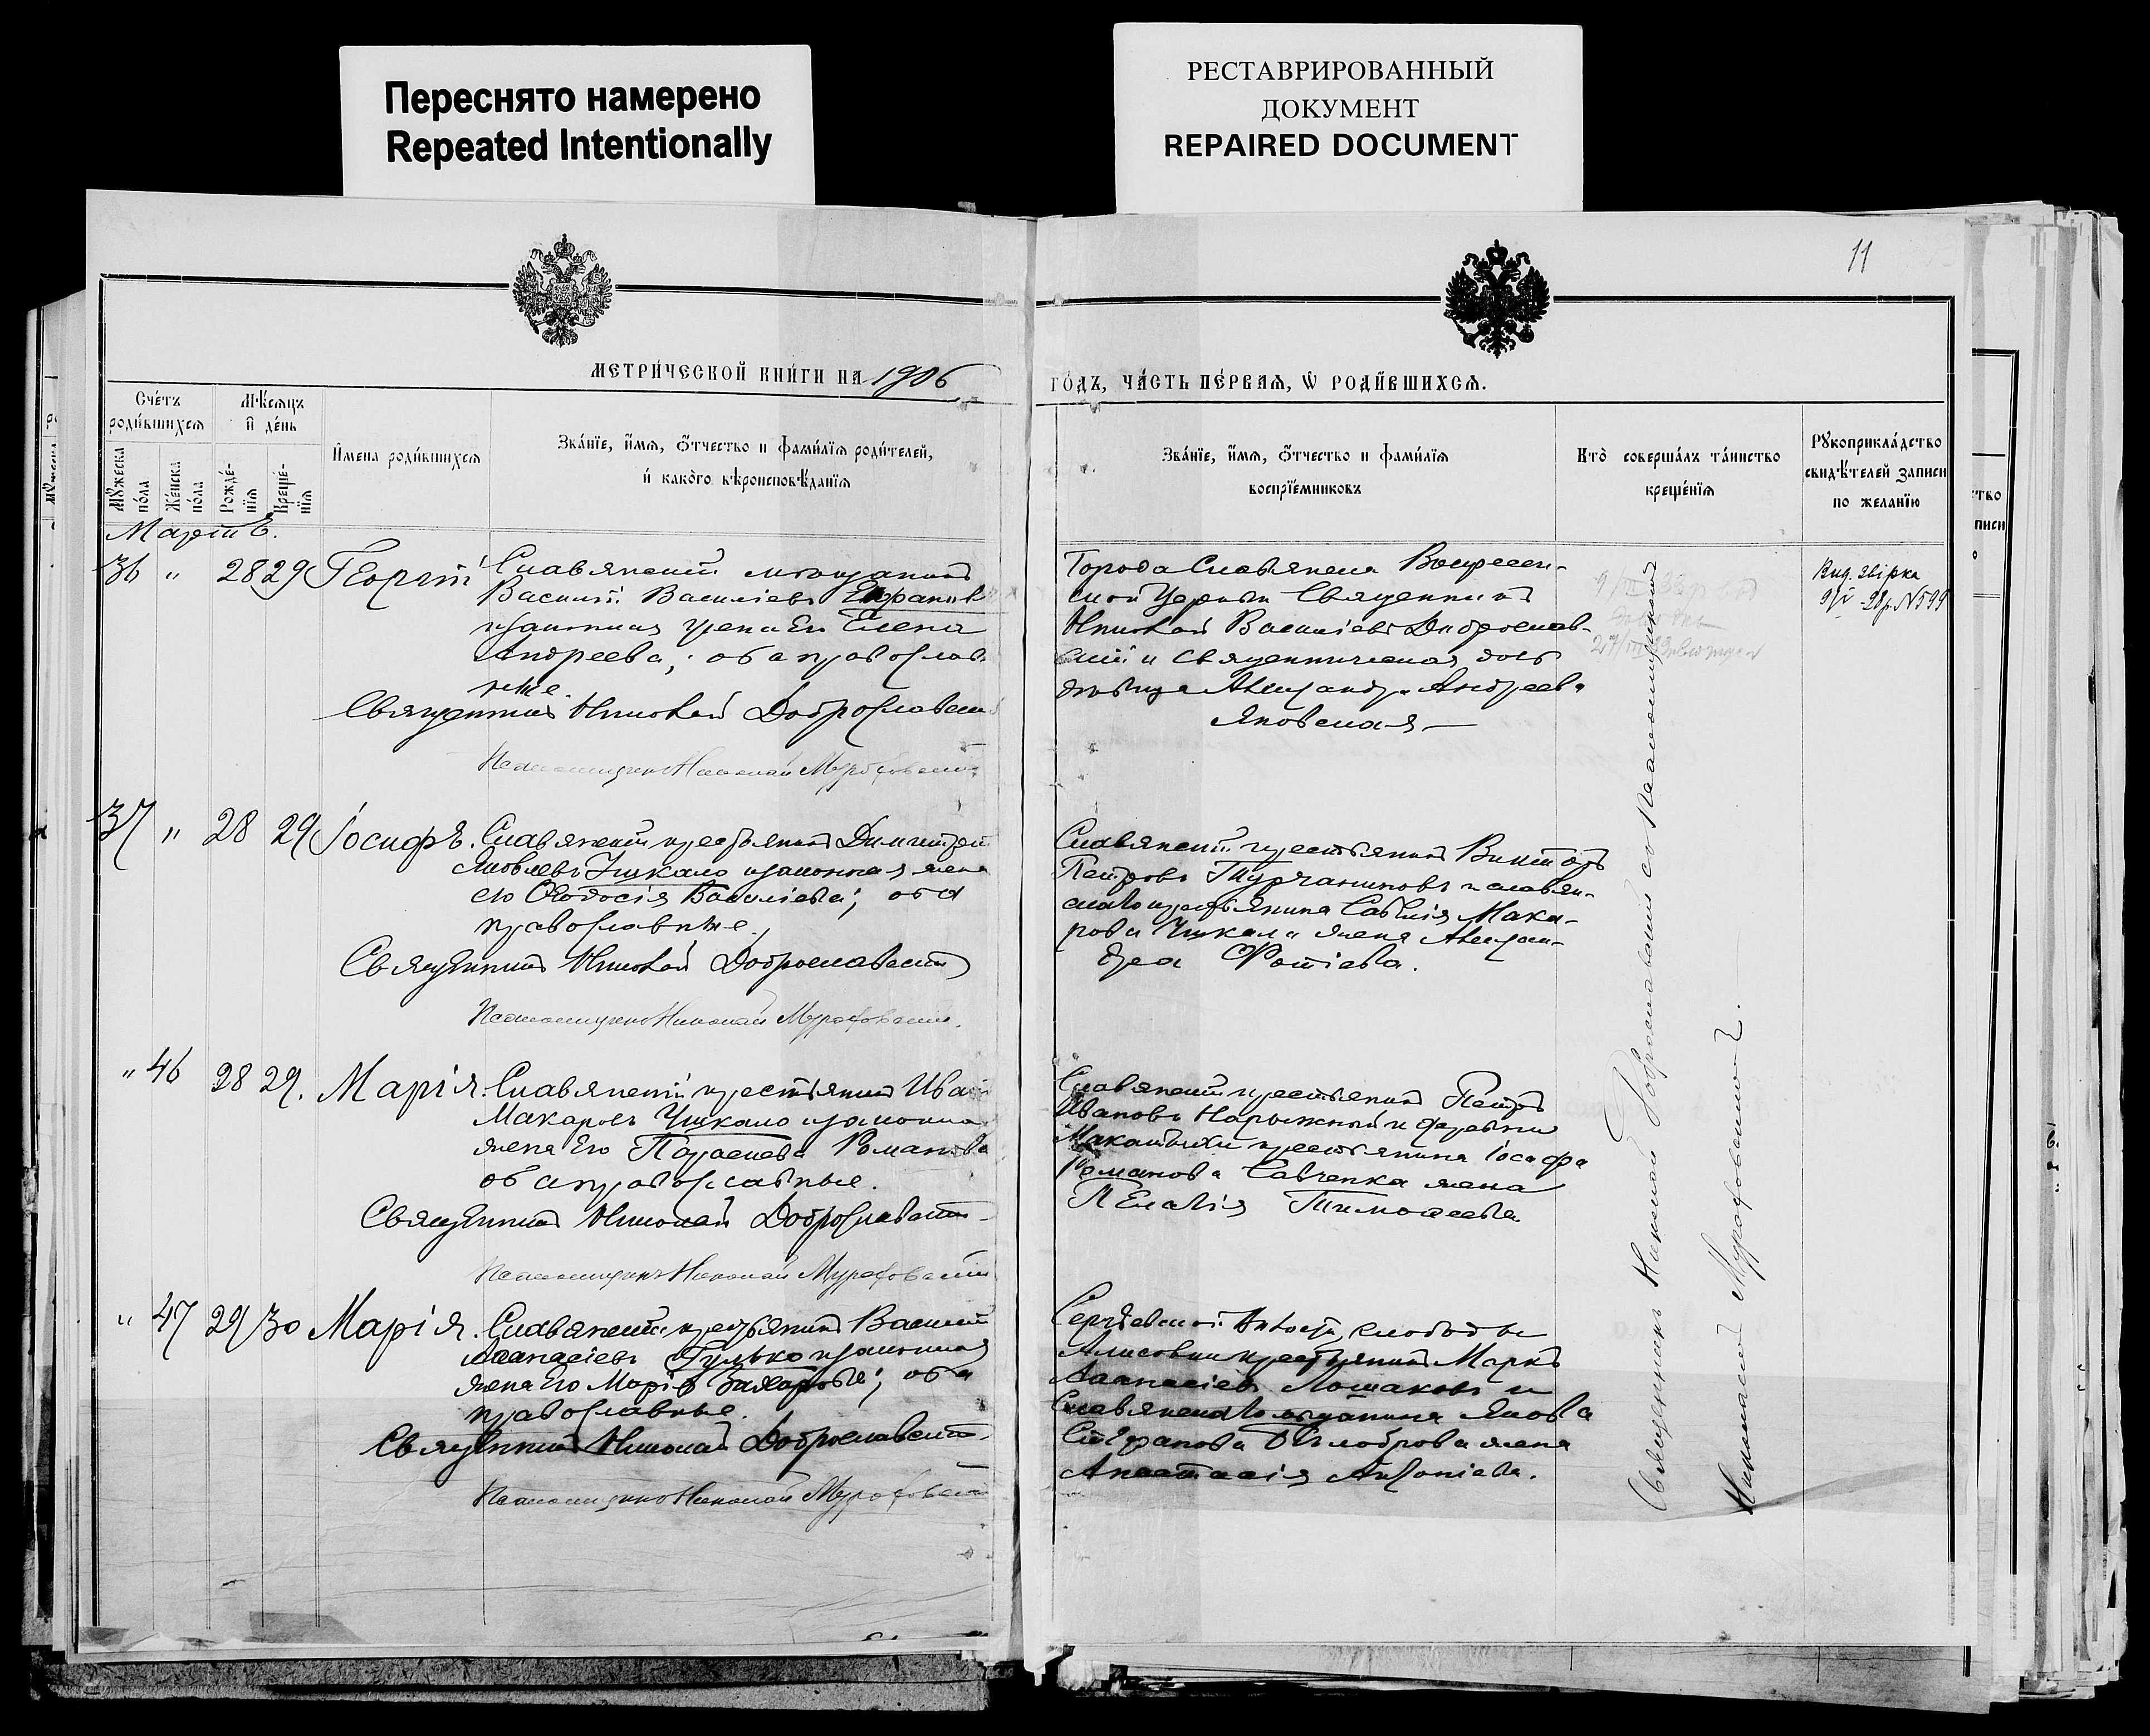 Переснято намерено
Repeated Intentionally
РЕСТАВРИРОВАННЫЙ
ДОКУМЕНТ
REPAIRED DOCUMENT
11
МЕТРИ́ЧЕСКОЙ КНИ́ГИ НА 1906
ГО́ДЪ, ЧА́СТЬ ПЕ́РВАѦ, Ѡ РОДИ́ВШИХСѦ.
Сче́тъ
роди́вшихсѧ
Мѣ́сѧцъ
и де́нь
Мꙋ́жеска
по́ла
Же́нска
по́ла
Рожде́-
нїѧ
Креще́-
нїѧ
Имена роди́вшихсѧ
Зва́нїе, и́мѧ, ѻ́тчество и фами́лїѧ роди́телей,
и како́го вѣроисповѣ́данїѧ
Зва́нїе, и́мѧ, ѻ́тчество и фами́лїѧ
воспрїе́мниковъ
Кто̀ соверша́лъ та́инство
креще́нїѧ
Рꙋкоприкла́дство
свидѣ́телей записи
по жела́нїю
Мартъ.
36 " 28 29 Георгій Славянскій мѣщанинъ
Василій Васильевъ
законная жена его Елена
Андреева; оба православ-
ные.
Священникъ Николай Доброславскій
Псаломщикъ Николай Мурафовскій
Города Славянска Воскресен-
ской Церкви Священникъ
Николай Васильевъ Доброслав-
скій и священническая дочь
дѣвица Александра Андреева
Яновская
Вид. звірка
N 599
37 " 28 29 Іосифъ. Славянскій крестьянинъ Димитрій
Яковлевъ Чикало законная жена
его Ѳеодосія Васильева; оба
православные.
Священникъ Николай Доброславскій
Псаломщикъ Николай Мурафовскій.
Славянскій крестьянинъ Викторъ
Петровъ Турчаниновъ и славян-
скаго крестьянина Мака-
рова Чикала жена Алексан-
дра Фотіева.
" 46 28 29. Марія. Славянскій крестьянинъ Иванъ
Макаровъ Чикало законная
жена его Параскева Романова
оба православные.
Священникъ Николай Доброславскій
Псаломщикъ Николай Мурафовскій
Славянскій крестьянинъ Петръ
Ивановъ Нарыжный и деревни
крестьянина
Романова Савченка жена
Пелагія Тимоѳеева.
" 47 29 30 Марія. Славянскій крестьянинъ Василій
Аѳанасіевъ Гулько законная
жена его Марія Захарова; оба
православные.
Священникъ Николай Доброславскій
Псаломщикъ Николай Мурафовскій
Сергіевской волости, слободы
крестьянинъ Маркъ
Аѳанасіевъ Лошаковъ и
Славянскаго мѣщанина Якова
Стефанова Бѣлоброва жена
Анастасія Антоніева.
Священникъ Николай Доброславскій со псаломщикомъ
Николаемъ Мурафовскимъ.